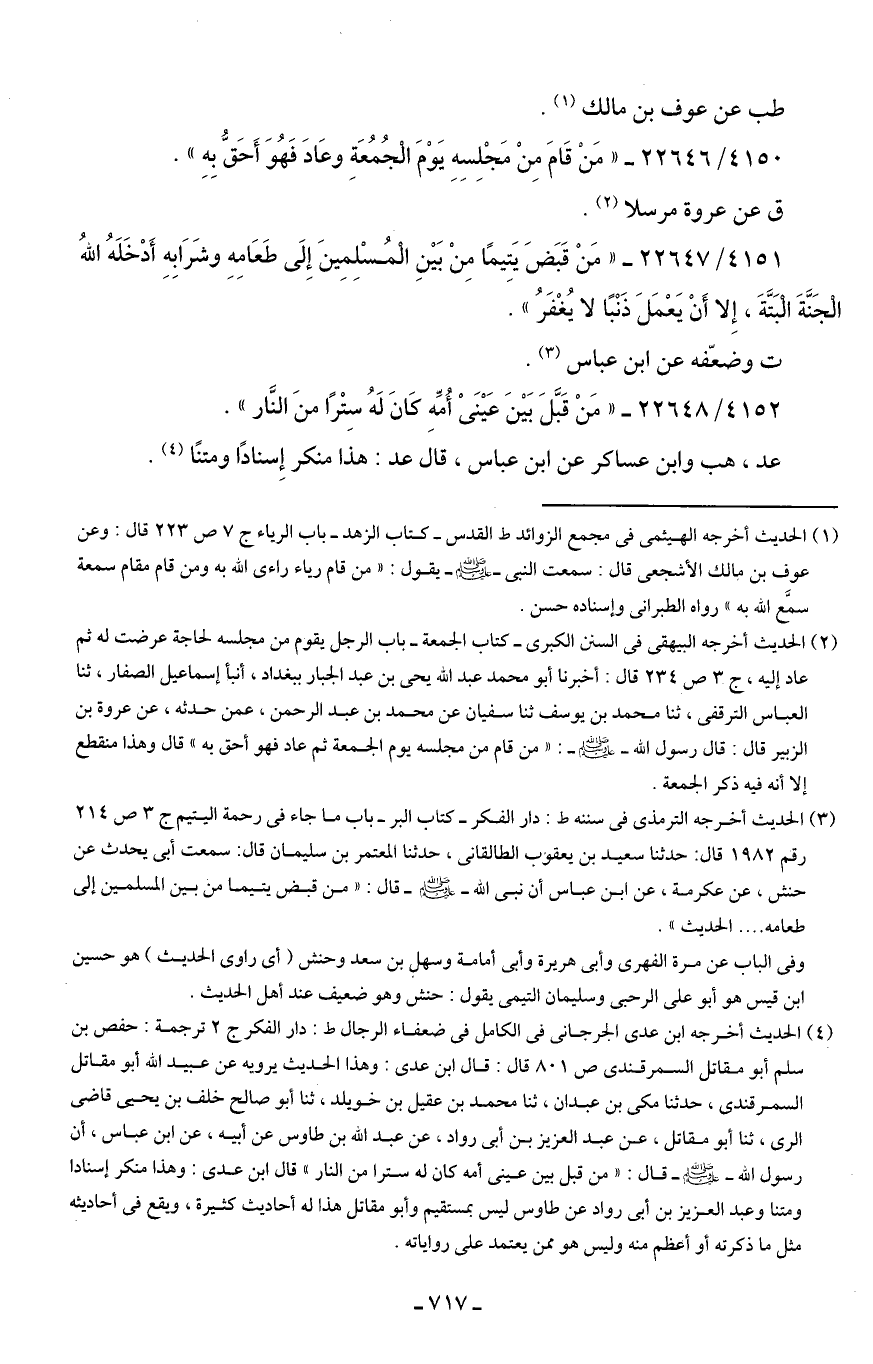 طب عن عوف بن مالك (١) .
٤١٥٠/ ٢٢٦٤٦ ـ « مَنْ قَامَ مِنْ مَجْلِسِهِ يَوْمَ الْجُمُعَةِ وعَادَ فَهُوَ أَحَقُّ بِهِ » .
ق عن عروة مرسلا (٢) .
٤١٥١/ ٢٢٦٤٧ ـ « مَنْ قَبَضَ يَتِيمًا مِنْ بَيْنِ الْمُسْلِمِينَ إِلَى طَعَامِهِ وشَرَابِهِ أَدْخَلَهُ اللهُ
الْجَنَّةَ الْبَتَّةَ ، إِلا أَنْ يَعْمَلَ ذَنْبًا لا يُغْفَرُ » .
ت وضعّفه عن ابن عباس (٣) .
٤١٥٢/ ٢٢٦٤٨ ـ « مَنْ قَبَّلَ بَيْنَ عَيْنَىْ أُمِّهِ كَانَ لَهُ سِتْرًا مِنَ النَّارِ » .
عد ، هب وابن عساكر عن ابن عباس ، قال عد : هذا منكر إسنادًا ومتنًا (٤) .
(١) الحديث أخرجه الهيثمى فى مجمع الزوائد ط القدس ـ كتاب الزهد ـ باب الرياء ج ٧ ص ٢٢٣ قال : وعن
عوف بن مالك الأشجعى قال : سمعت النبى ـ ﷺ ـ يقول : « من قام رياء راءى الله به ومن قام مقام سمعة
سمَّع الله به » رواه الطبرانى وإسناده حسن .
(٢) الحديث أخرجه البيهقى فى السنن الكبرى ـ كتاب الجمعة ـ باب الرجل يقوم من مجلسه لحاجة عرضت له ثم
عاد إليه ، ج ٣ ص ٢٣٤ قال : أخبرنا أبو محمد عبد الله يحى بن عبد الجبار ببغداد ، أنبأ إسماعيل الصفار ، ثنا
العباس الترقفى ، ثنا محمد بن يوسف ثنا سفيان عن محمد بن عبد الرحمن ، عمن حدثه ، عن عروة بن
الزبير قال : قال رسول الله ـ ﷺ ـ : « من قام من مجلسه يوم الجمعة ثم عاد فهو أحق به » قال وهذا منقطع
إلا أنه فيه ذكر الجمعة .
(٣) الحديث أخرجه الترمذى فى سننه ط : دار الفكر ـ كتاب البر ـ باب ما جاء فى رحمة اليتيم ج ٣ ص ٢١٤
رقم ١٩٨٢ قال: حدثنا سعيد بن يعقوب الطالقانى ، حدثنا المعتمر بن سليمان قال: سمعت أبى يحدث عن
حنش ، عن عكرمة ، عن ابن عباس أن نبى الله ـ ﷺ ـ قال : « من قبض يتيما من بين المسلمين إلى
طعامه.... الحديث » .
وفى الباب عن مرة الفهرى وأبى هريرة وأبى أمامة وسهل بن سعد وحنش ( أى راوى الحديث ) هو حسين
ابن قيس هو أبو على الرحبى وسليمان التيمى يقول : حنش وهو ضعيف عند أهل الحديث .
(٤) الحديث أخرجه ابن عدى الجرجانى فى الكامل فى ضعفاء الرجال ط : دار الفكر ج ٢ ترجمة : حفص بن
سلم أبو مقاتل السمرقندى ص ٨٠١ قال : قال ابن عدى : وهذا الحديث يرويه عن عبيد الله أبو مقاتل
السمرقندى ، حدثنا مكى بن عبدان ، ثنا محمد بن عقيل بن خويلد ، ثنا أبو صالح خلف بن يحيى قاضى
الرى ، ثنا أبو مقاتل ، عن عبد العزيز بن أبى رواد ، عن عبد الله بن طاوس عن أبيه ، عن ابن عباس ، أن
رسول الله ـ ﷺ ـ قال : « من قبل بين عينى أمه كان له سترا من النار » قال ابن عدى : وهذا منكر إسنادا
ومتنا وعبد العزيز بن أبى رواد عن طاوس ليس بمستقيم وأبو مقاتل هذا له أحاديث كثيرة ، ويقع فى أحاديثه
مثل ما ذكرته أو أعظم منه وليس هو ممن يعتمد على رواياته .
ـ ٧١٧ ـ